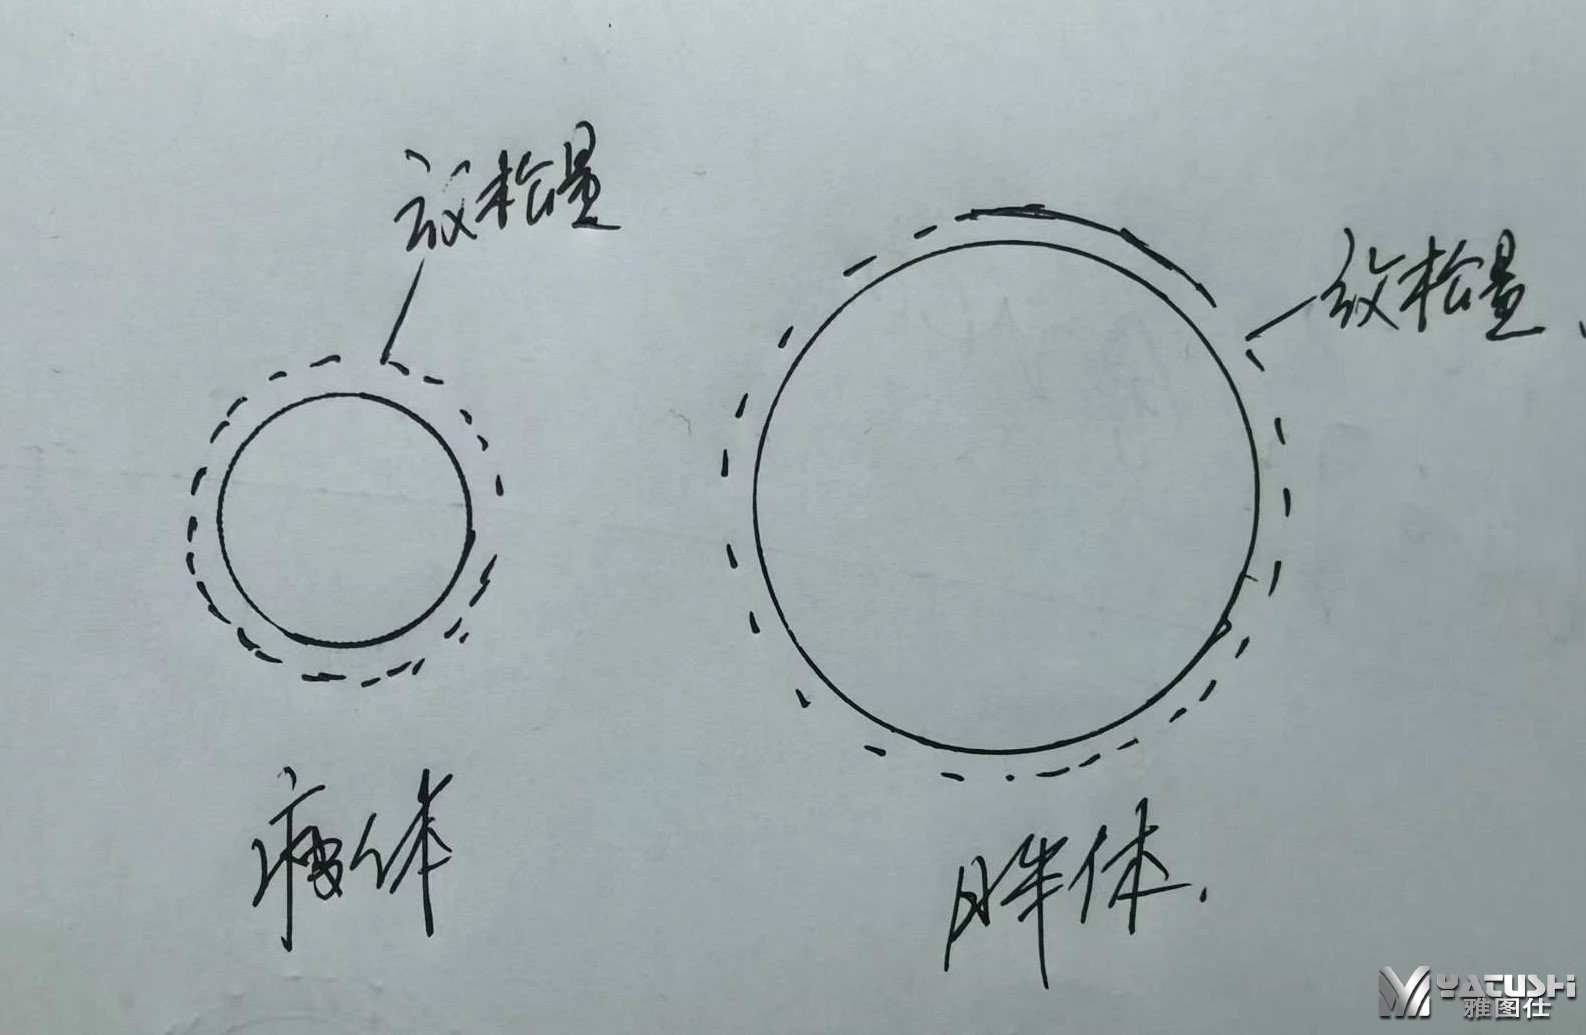 放松量
放松量
瘦体
胖体.
YATUSHI
雅图仕